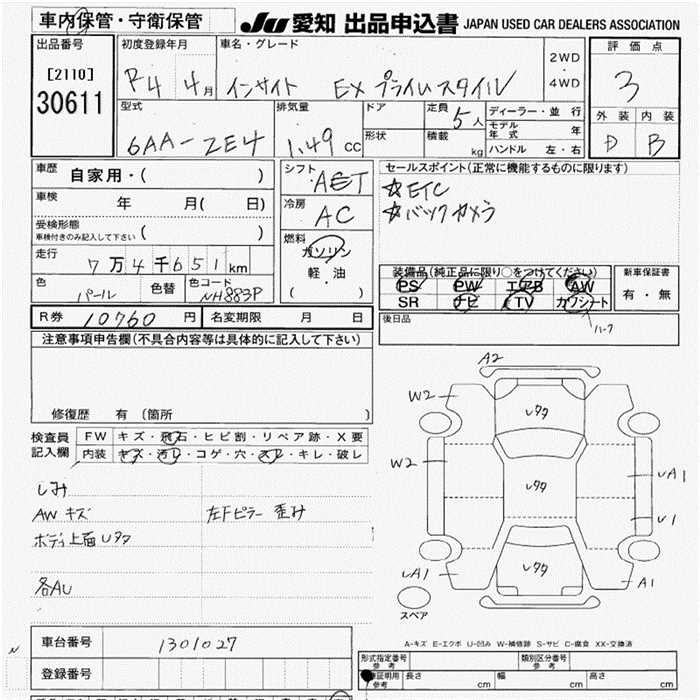 車内保管・守衛保管
JU 愛知 出品申込書 JAPAN USED CAR DEALERS ASSOCIATION
出品番号
[2110]
30611
初度登録年月
R4 4月
車名・グレード
インサイト EX プライムスタイル
2WD
・
4WD
評価点
3
外装 内装
D B
型式
6AA-ZE4
排気量
1.49 cc
ドア
形状
定員 5人
積載 kg
ディーラー・並行
モデル年式 年
ハンドル 左・右
車歴
自家用・( )
車検
年 月( 日)
受検形態
車検付きのみ記入して下さい ( )
走行
7万4千651km
色
パール
色替
色コード
NH883P
シフト
AET
冷房
AC
燃料
ガソリン
軽・油
( )
セールスポイント(正常に機能するものに限ります)
☆ETC
☆バックカメラ
装備品(純正品に限り○をつけてください)
PS PW エアB AW
SR ナビ TV カワシート
ハーフ
新車保証書
有・無
後日品
R券 10760円
名変期限 月 日
注意事項申告欄(不具合内容等は具体的に記入して下さい)
修復歴 有(箇所 )
検査員
記入欄
FW キズ・飛石・ヒビ割・リペア跡・X要
内装 キズ・汚レ・コゲ・穴・スレ・キレ・破レ
しみ
AW キズ
左Fピラー 歪み
ボディ上面 Uタタ
各AU
A2
W2
W2
UA1
U1
UA1
A1
いタタ
いタタ
いタタ
スペア
A-キズ E-エクボ U-凹み W-補修跡 S-サビ C-腐食 XX-交換済
車台番号
1301027
登録番号
型式指定番号
参考
類別区分番号
参考
証明用
参考
長さ cm
幅 cm
高さ cm